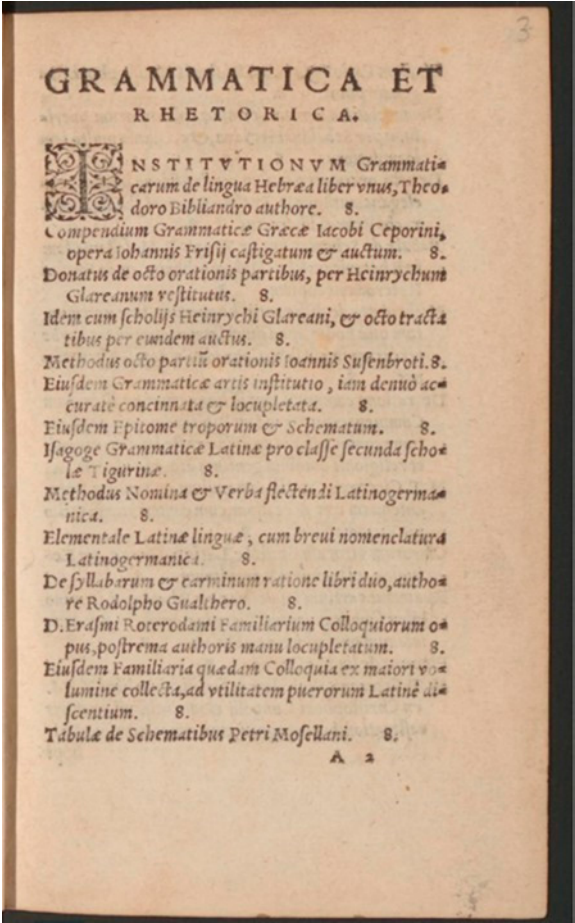 3
GRAMMATICA ET
RHETORICA.
INSTITVTIONVM Grammati=
carum de lingua Hebræa liber vnus, Theo=
doro Bibliandro authore. 8.
Compendium Grammaticæ Græcæ Iacobi Ceporini,
opera Iohannis Frisij castigatum & auctum. 8.
Donatus de octo orationis partibus, per Heinrychum
Glareanum restitutus. 8.
Idem cum scholijs Heinrychi Glareani, & octo tracta
tibus per eundem auctus. 8.
Methodus octo partiū orationis Ioannis Susenbroti. 8.
Eiusdem Grammaticæ artis institutio, iam denuò ac=
curatè concinnata & locupletata. 8.
Eiusdem Epitome troporum & Schematum. 8.
Isagoge Grammaticæ Latinæ pro classe secunda scho=
læ Tigurinæ. 8.
Methodus Nomina & Verba flectendi Latinogerma=
nica. 8.
Elementale Latinæ linguæ, cum breui nomenclatura
Latinogermanica. 8.
De syllabarum & carminum ratione libri duo, autho=
re Rodolpho Gualthero. 8.
D. Erasmi Roterodami Familiarium Colloquiorum o=
pus, postrema authoris manu locupletatum. 8.
Eiusdem Familiaria quædam Colloquia ex maiori vo=
lumine collecta, ad vtilitatem puerorum Latinè di=
scentium. 8.
Tabulæ de Schematibus Petri Mosellani. 8.
A 2